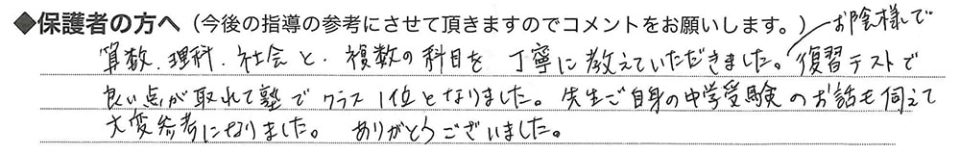 ◆保護者の方へ（今後の指導の参考にさせて頂きますのでコメントをお願いします。）
算数、理科、社会と、複数の科目を丁寧に教えていただきました。お陰様で復習テストで
良い点が取れて塾でクラス1位となりました。先生ご自身の中学受験のお話も伺えて
大変参考になりました。ありがとうございました。